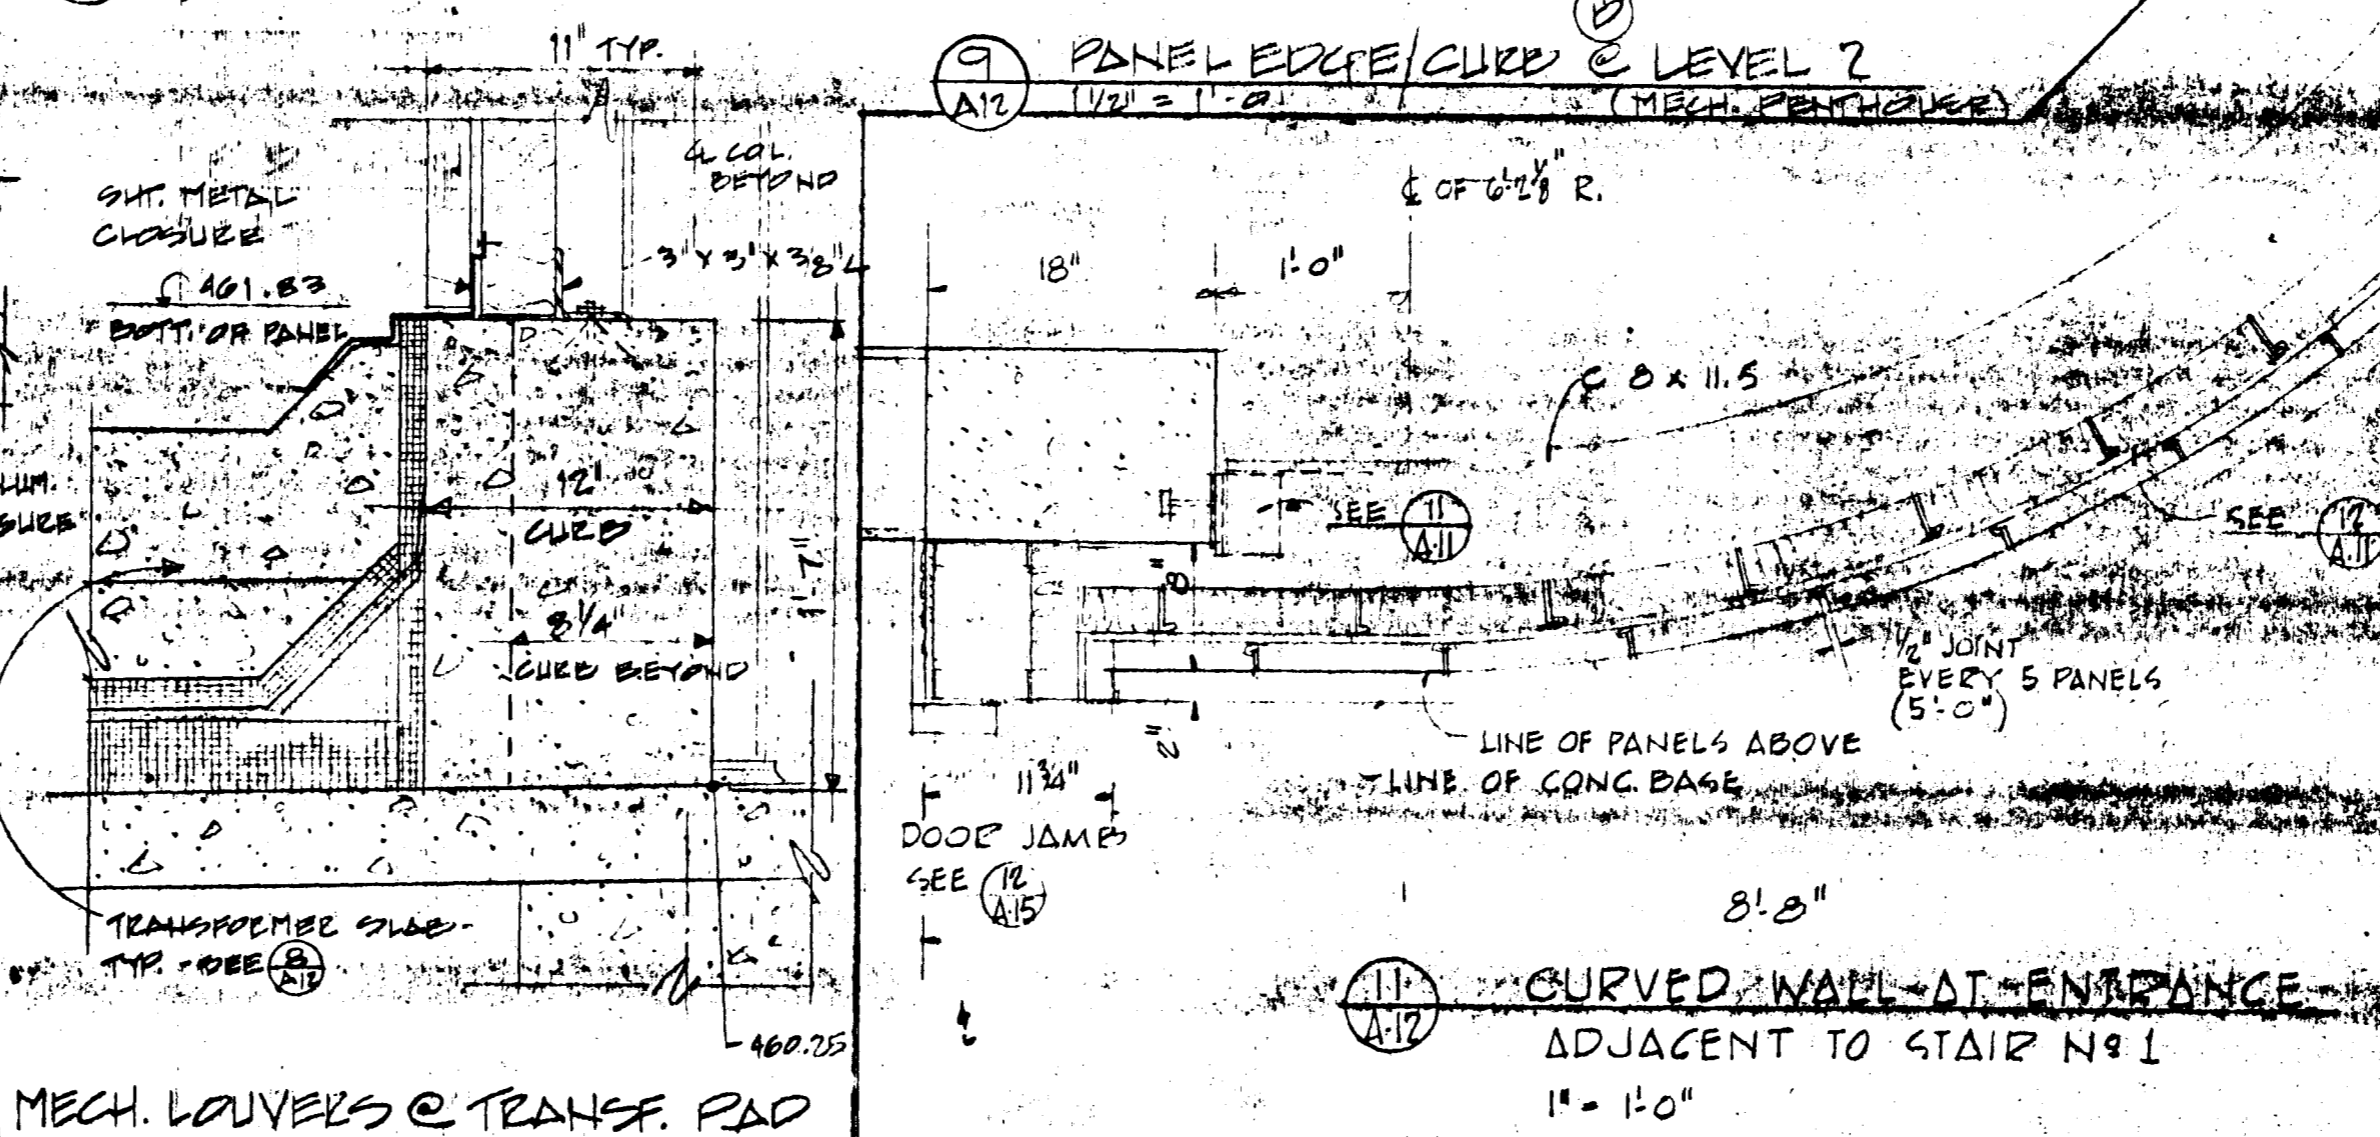 11" TYP.
℄ COL.
BEYOND
SHT. METAL
CLOSURE
461.83
BOTT. OF PANEL
3" x 3" x 3/8" L
12"
CURB
8 1/4"
CURB BEYOND
1'-7"
TRANSFORMER SLAB -
TYP. - SEE 8
A12
460.25
MECH. LOUVERS @ TRANSF. PAD
9
A12
PANEL EDGE/CURB @ LEVEL 2
1 1/2" = 1'-0"
(MECH. PENTHOUSE)
℄ OF 6'-2 1/8" R.
18"
1'-0"
C 8 x 11.5
SEE 11
A.11
SEE 12
A.11
8"
2"
1/2" JOINT
EVERY 5 PANELS
(5'-0")
LINE OF PANELS ABOVE
LINE OF CONC. BASE
11 3/4"
DOOR JAMB
SEE 12
A.15
8'-8"
11
A-12
CURVED WALL AT ENTRANCE
ADJACENT TO STAIR Nº 1
1" = 1'-0"